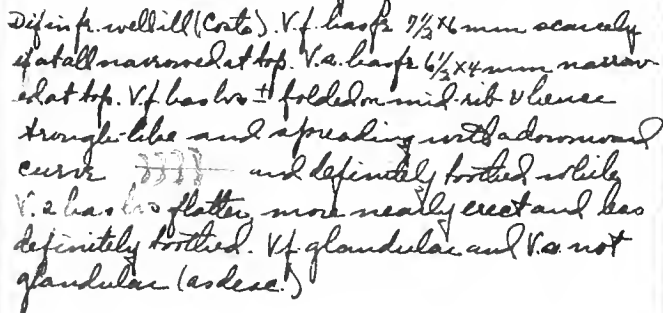 Dif in fr. well ill (Coats). V.f. has fr 7½ x 6 mm scarcely
if at all narrowed at top. V.a. has fr 6½ x 4 mm narrow-
ed at top. V.f has lvs ± folded on mid-rib & hence
trough-like and spreading with a downward
curve and definitely toothed while
V. a has lvs flatter, more nearly erect and less
definitely toothed. V.f. glandular and V.a. not
glandular (as desc.)